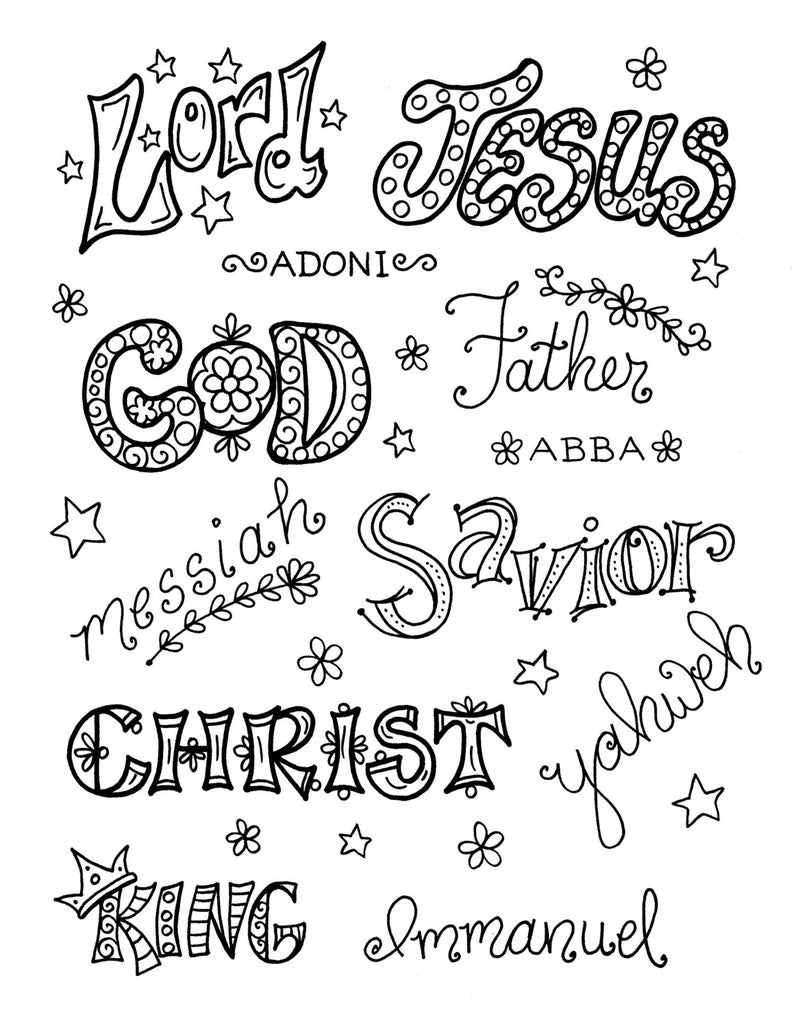 Lord JESUS
ADONI
GOD Father
ABBA
messiah Savior
CHRIST yahweh
KING Immanuel